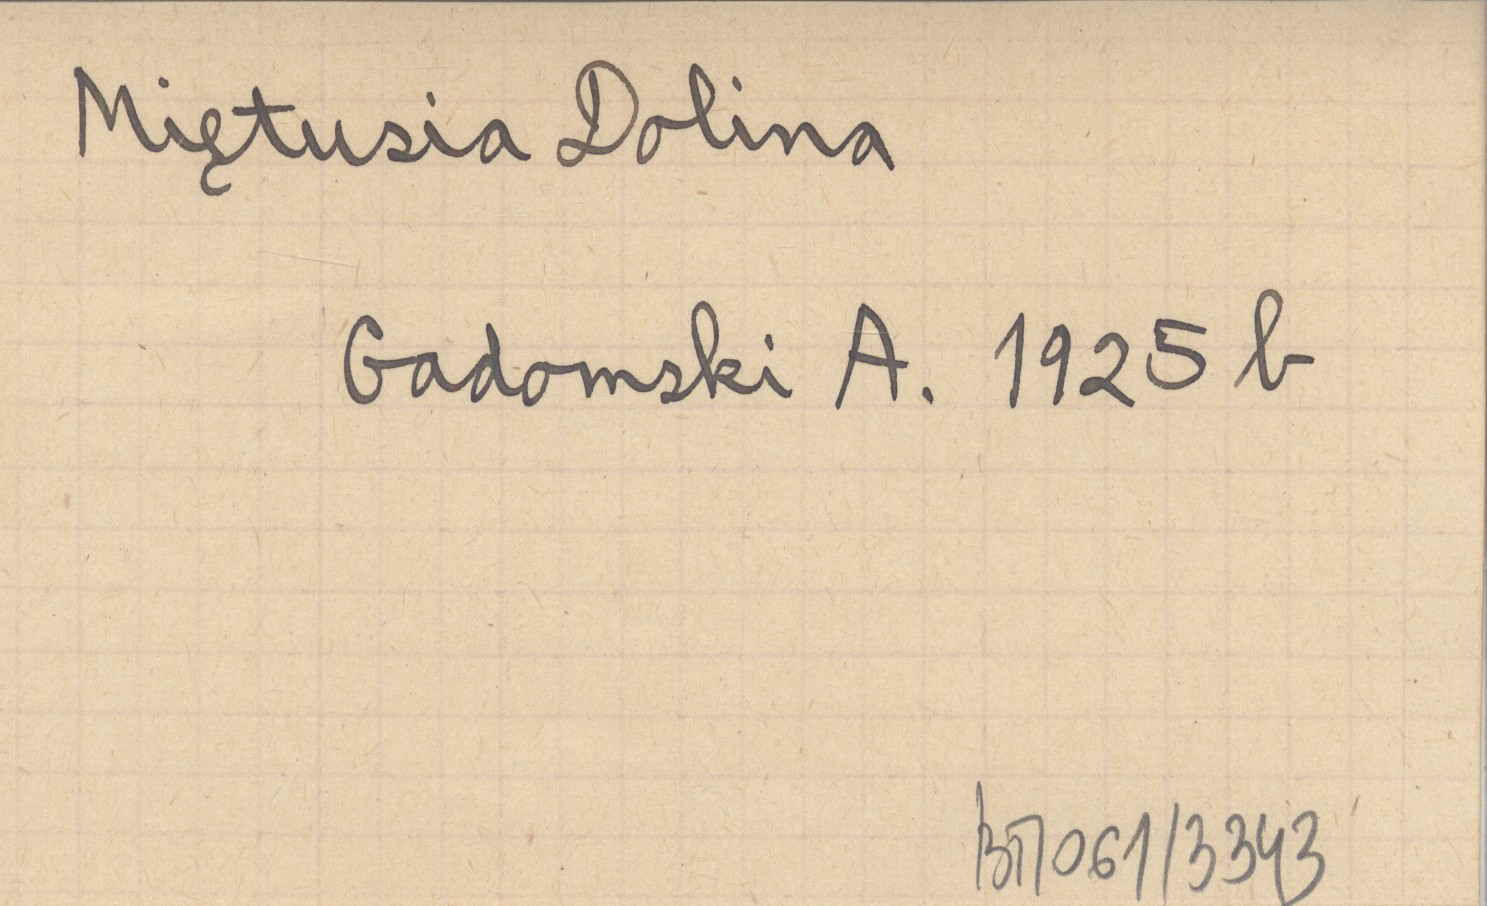 Miętusia Dolina
Gadomski A. 1925 b
061/3343